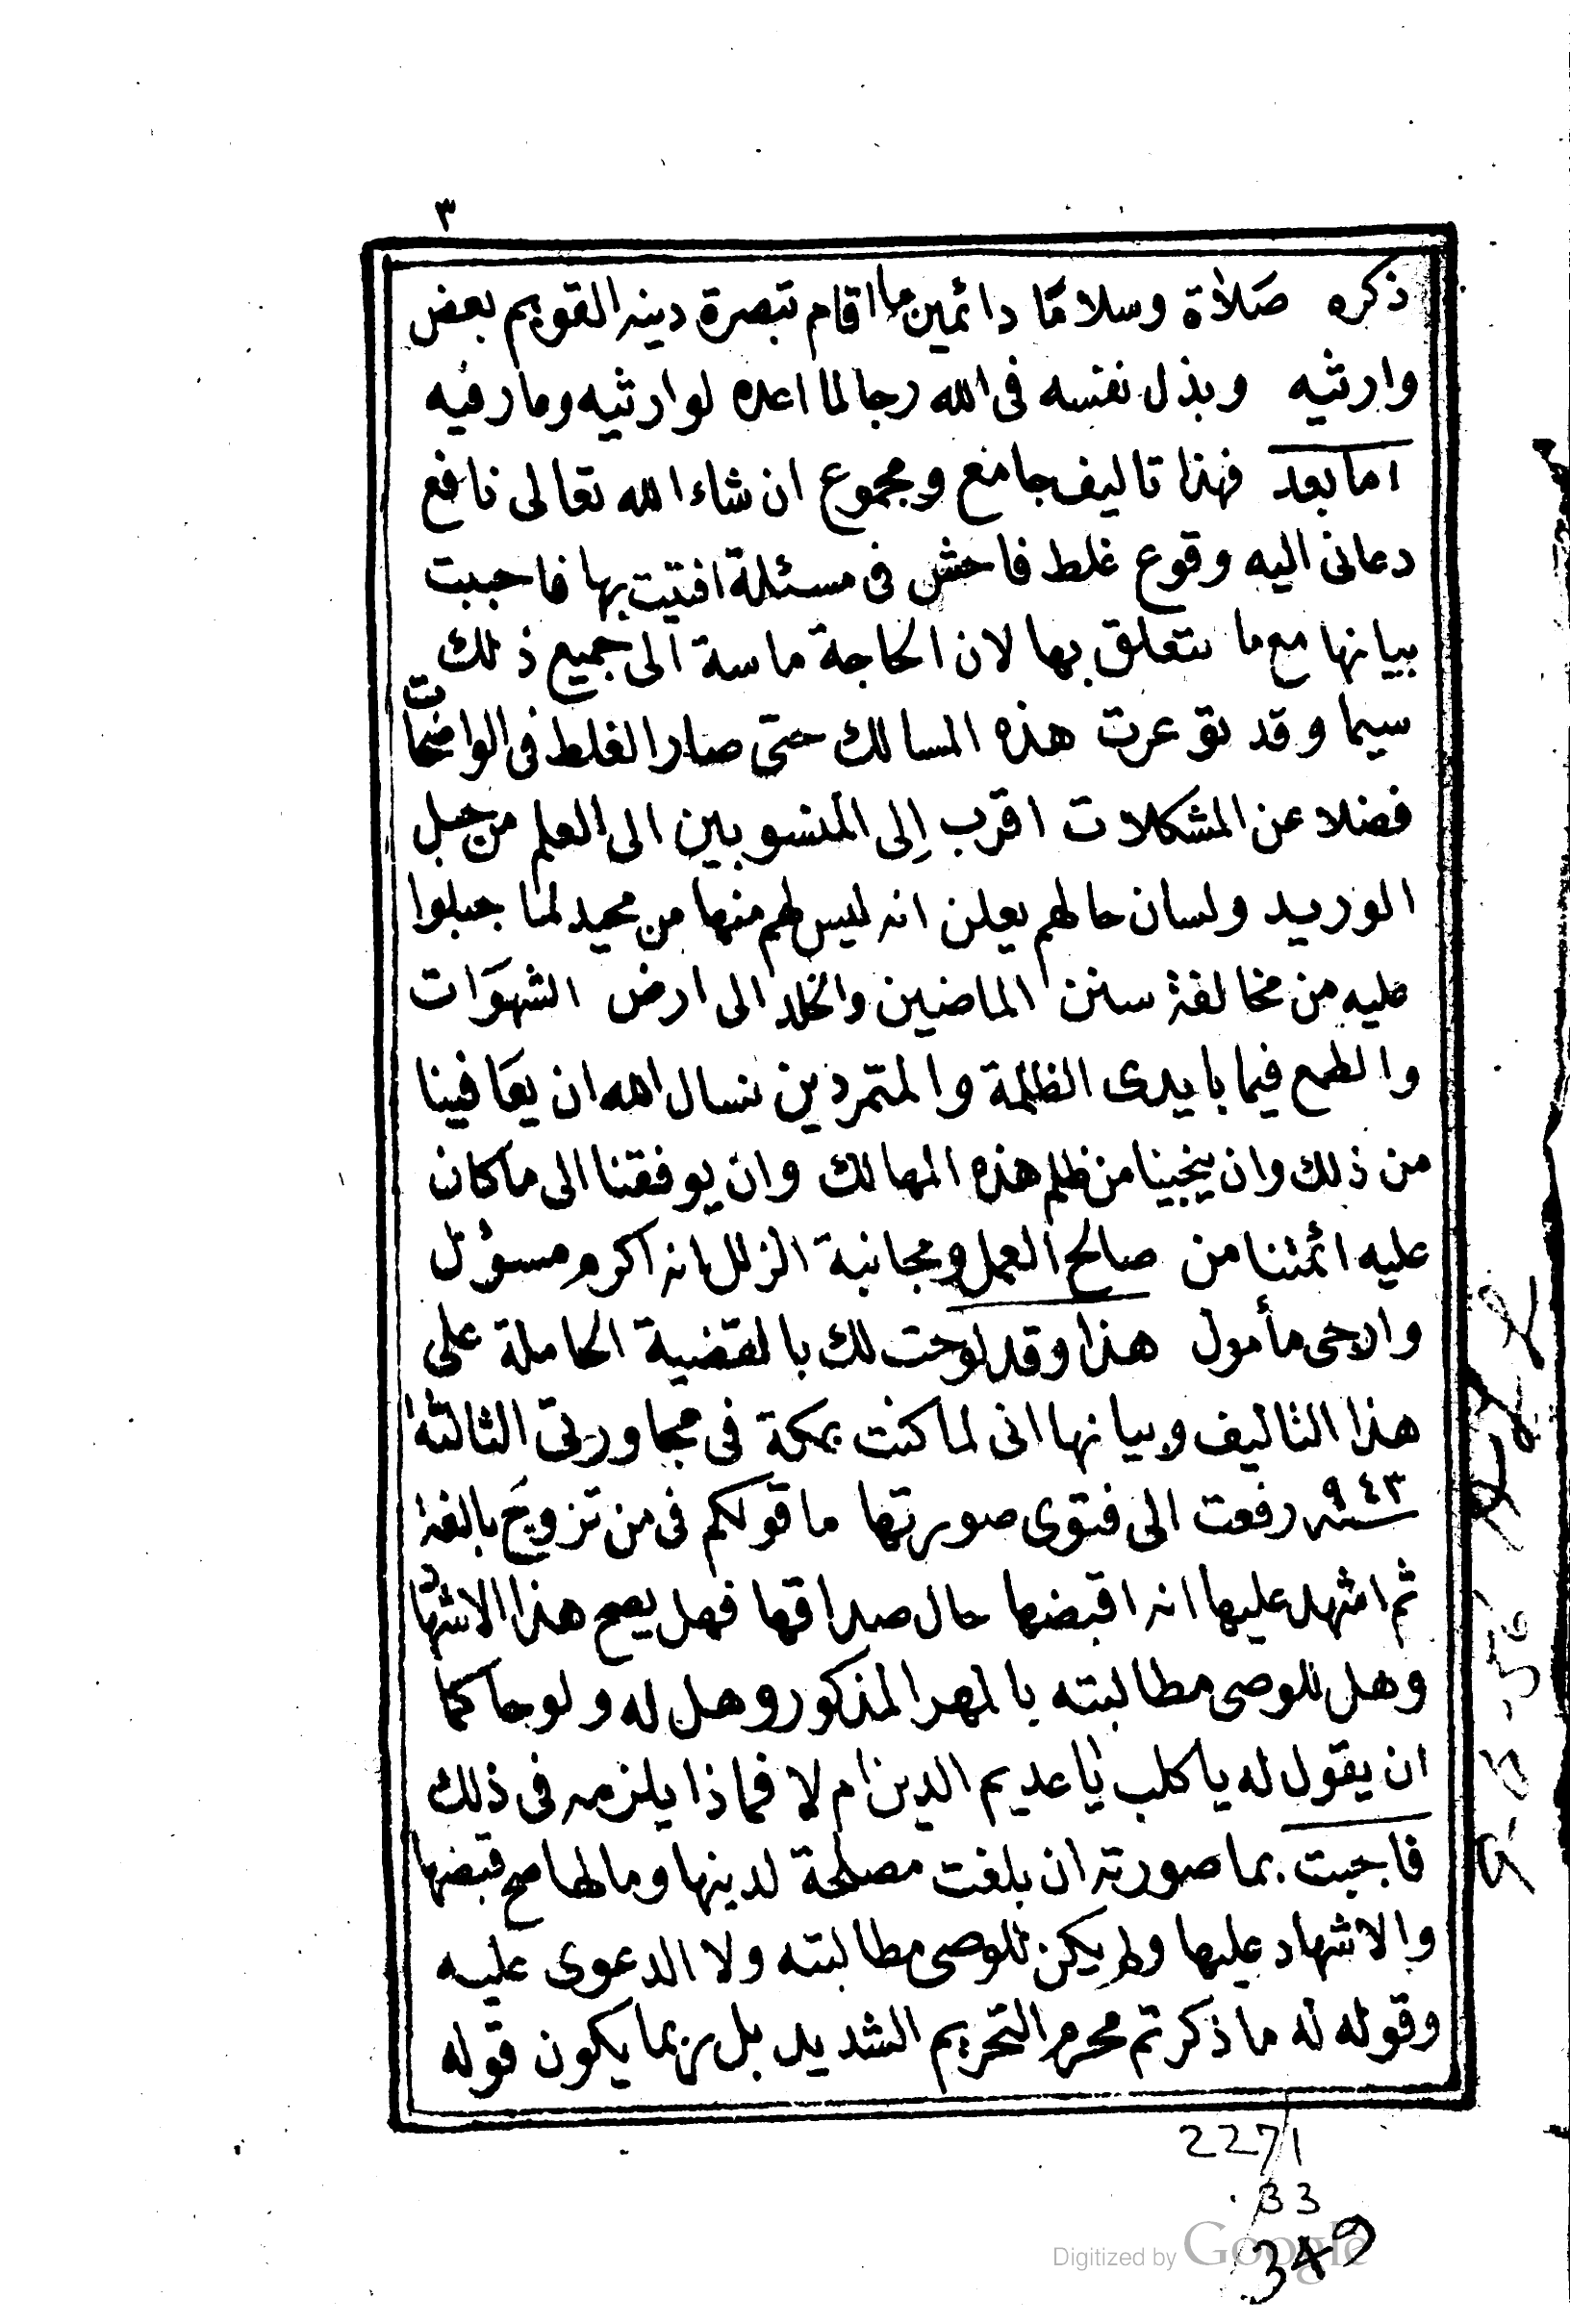 ٣
ذكره صلاة وسلامًا دائمين ما اقام تبصرة دينه القويم بعض
وارثيه وبذل نفسه فى الله رجا لما اعده لوارثيه ومارفيه
اما بعد فهذا تاليف جامع ومجموع ان شاء الله تعالى نافع
دعانى اليه وقوع غلط فاحش فى مسئلة افتيت بها فاحببت
بيانها مع ما يتعلق بها لان الحاجة ماسة الى جميع ذلك
سيما وقد توعرت هذه المسالك حتى صار الغلط فى الواضحات
فضلا عن المشكلات اقرب إلى المنسوبين الى العلم من حبل
الوريد ولسان حالهم يعلن انه ليس لهم منها من محيد لما جبلوا
عليه من مخالفة سنن الماضين والخلد الى ارض الشهوات
والطمع فيما بايدى الظلمة والمتمردين نسال الله ان يعافينا
من ذلك وان ينجينا من ظلم هذه المهالك وان يوفقنا الى ما كان
عليه ائمتنا من صالح العمل ومجانبة الزلل انه اكرم مسؤل
وارجى مأمول هذا وقد لوحت لك بالقضية الحاملة على
هذا التاليف وبيانها انى لما كنت بمكة فى مجاورتى الثالثة
سنة ٩٤٣ رفعت الى فتوى صورتها ما قولكم فى من تزويج بالغة
ثم اشهد عليها انه اقبضها حال صداقها فهل يصح هذا الاشهاد
وهل للوصى مطالبته بالمهر المذكور وهل له ولو حاكما
ان يقول له يا كلب يا عديم الدين ام لا فماذا يلزمه فى ذلك
فاجبت بما صورته ان بلغت مصلحة لدينها ومالها صح قبضها
والاشهاد عليها ولم يكن للوصى مطالبته ولا الدعوى عليه
وقوله له ما ذكرتم محرم التحريم الشديد بل ربما يكون قوله
2271
.33
349
Digitized by Google